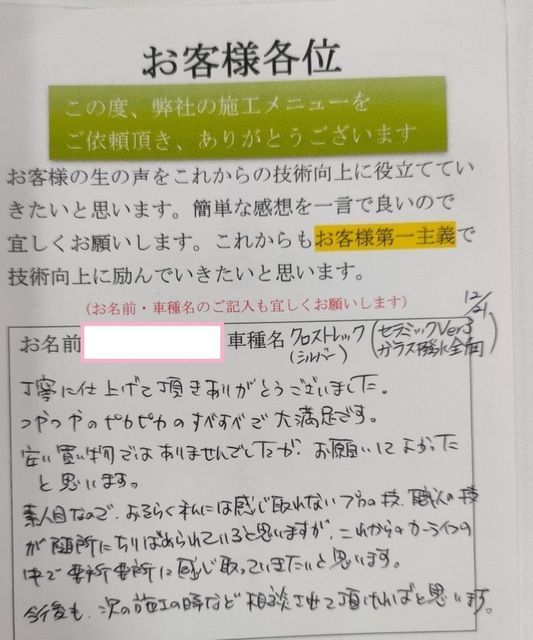 お客様各位
この度、弊社の施工メニューを
ご依頼頂き、ありがとうございます
お客様の生の声をこれからの技術向上に役立ててい
きたいと思います。簡単な感想を一言で良いので
宜しくお願いします。これからもお客様第一主義で
技術向上に励んでいきたいと思います。
(お名前・車種名のご記入も宜しくお願いします)
12/21
お名前 車種名 クロストレック (セラミックVer3
(シルバー) ガラス撥水全面)
丁寧に仕上げて頂きありがとうございました。
つやつやのピカピカのすべすべで大満足です。
安い買い物ではありませんでしたが、お願いしてよかった
と思います。
素人目なので、おそらく私には感じ取れないプロの技、職人の技
が随所にちりばめられていると思いますが、これからのカーライフの
中で要所要所に感じ取っていきたいと思います。
今後も、次の施工の時など相談させて頂ければと思います。